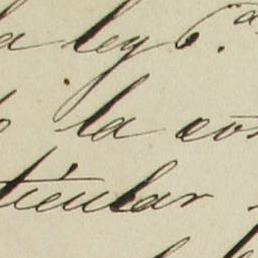 la ley 6.ª
la con
ticular